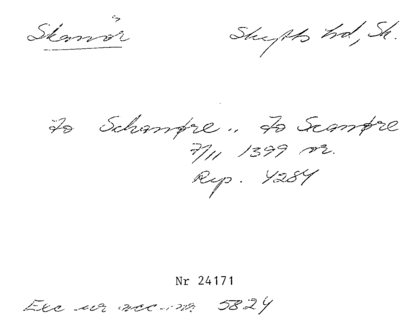 Skanör Skytts hd, Sk.
to Schanøre .. to Scanøre
7/11 1399 or.
Rep. 4284
Nr 24171
Exc ur acc.-nr 5824